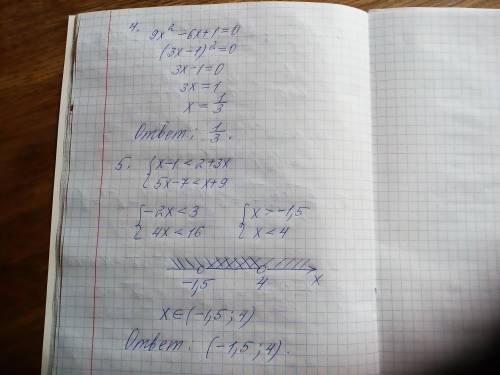 4. 9x² -6x+1=0
(3x-1)²=0
3x-1=0
3x=1
x = 1/3
Ответ: 1/3.
5. { x-1<2+3x
5x-7<x+9
{ -2x<3 { x>-1,5
4x<16 x<4
-1,5 4 x
x∈(-1,5; 4)
Ответ: (-1,5; 4).